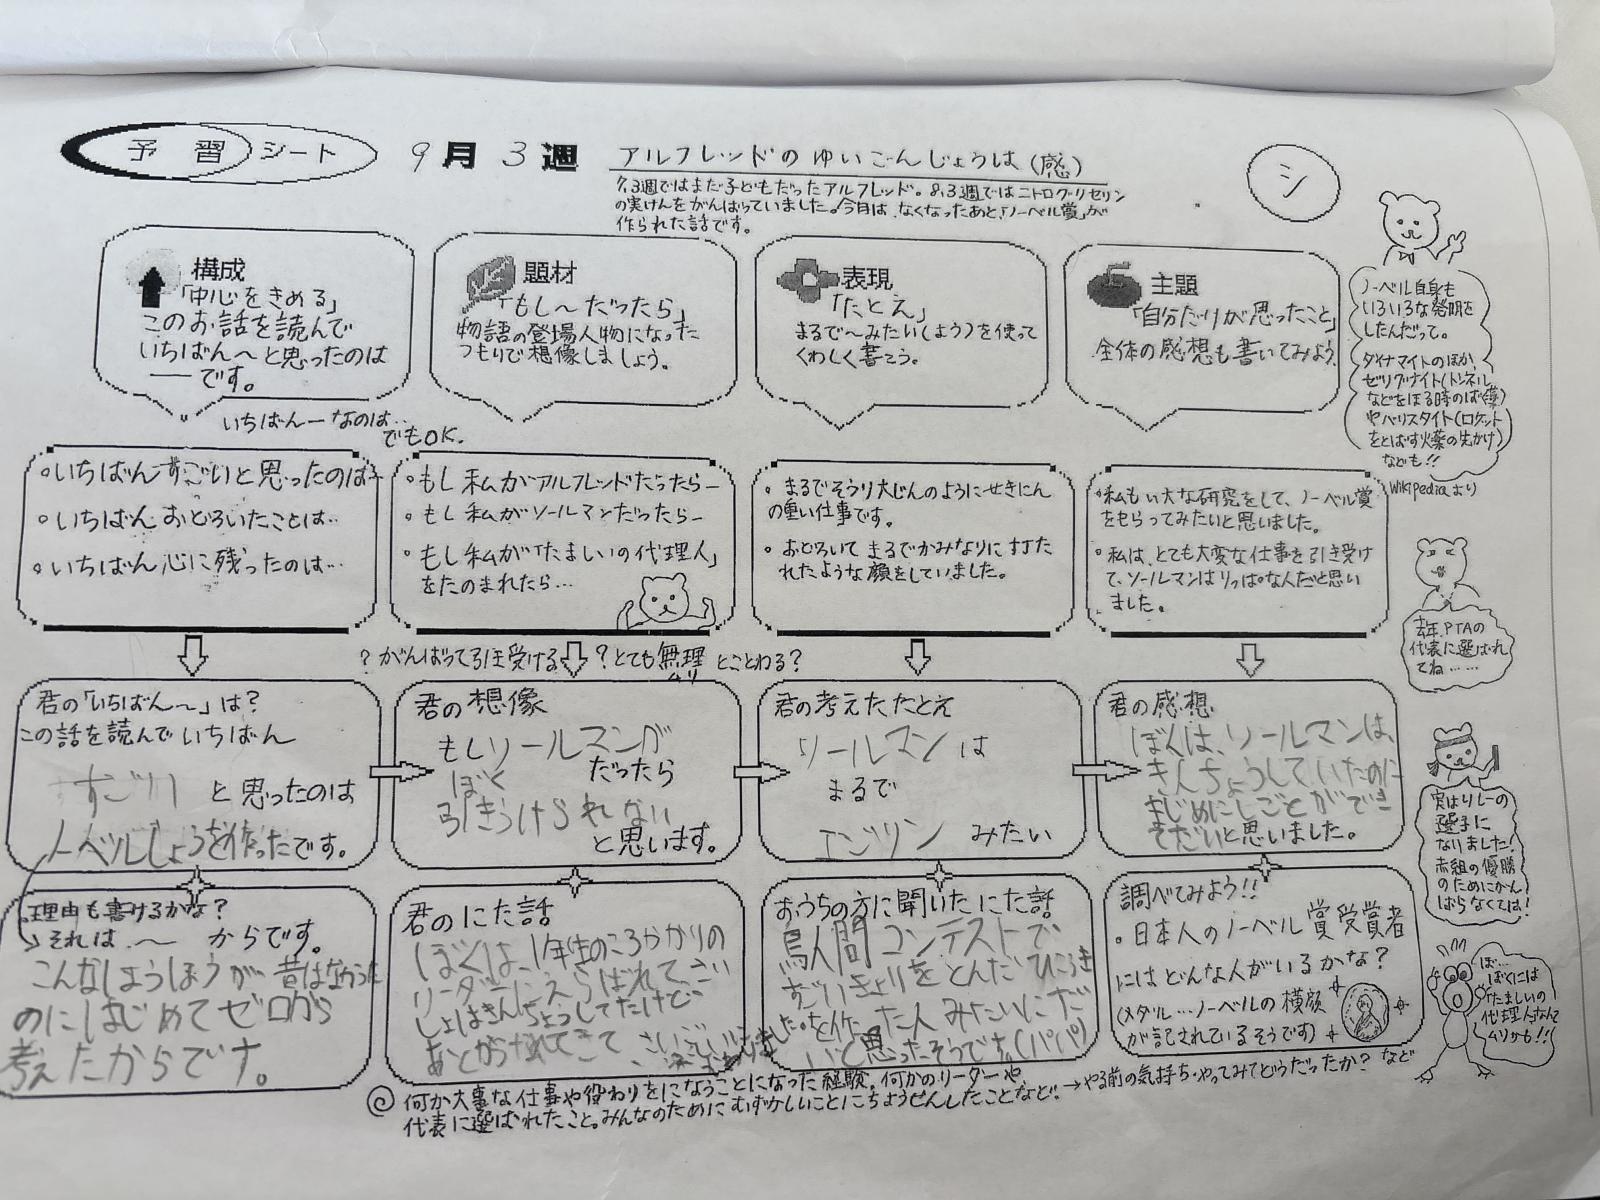 予習シート 9月3週 アルフレッドのゆいごんじょうは(感)
シ
7.3週ではまだ子どもだったアルフレッド。8.3週ではニトログリセリン
の実けんをがんばっていました。今月は、なくなったあと、「ノーベル賞」が
作られた話です。
構成
「中心をきめる」
このお話を読んで
いちばん〜と思ったのは
―です。
いちばん―なのは…
でもOK.
題材
「もし〜だったら」
物語の登場人物になった
つもりで想像しましょう。
表現
「たとえ」
まるで〜みたい(よう)を使って
くわしく書こう。
主題
「自分だりが思ったこと」
全体の感想も書いてみよう
ノーベル自身も
いろいろな発明を
したんだって。
ダイナマイトのほか、
ゼリグナイト(トンネル
などをほる時のばく薬)
やバリスタイト(ロケット
をとばす火薬の先がけ)
なども!!
Wikipediaより
・いちばんすごいと思ったのは
・いちばんおどろいたことは…
・いちばん心に残ったのは…
・もし私がアルフレッドだったら―
・もし私がソールマンだったら―
・もし私が「たましいの代理人」
をたのまれたら…
・まるでそうり大じんのようにせきにん
の重い仕事です。
・おどろいてまるでかみなりにうた
れたような顔をしていました。
・私もい大な研究をして、ノーベル賞
をもらってみたいと思いました。
・私は、とても大変な仕事を引き受け
て、ソールマンはりっぱな人だと思い
ました。
去年、PTAの
代表に選ばれ
てね……
?がんばって引き受ける ?とても無理とことわる?
ムリ
君の「いちばん〜」は?
この話を読んでいちばん
すごい と思ったのは
ノーベルしょうを作ったです。
君の想像
もしソールマンが
ぼく だったら
引きうけられない
と思います。
君の考えたたとえ
ソールマンは
まるで
エンジン みたい
君の感想
ぼくは、ソールマンは、
きんちょうしていたのに
まじめにしごとができ
てすごいと思いました。
実はリレーの
選手に
なりました!
赤組の優勝
のためにがん
ばらなくては!
理由も書けるかな?
→それは、〜 からです。
こんなしょうほうが、昔はなかった
のにはじめてゼロから
考えたからです。
君のにた話
ぼくは、1年生のころかかりの
リーダーにえらばれて、さい
しょはきんちょうしてたけど
あとからなれてきて、
おうちの方に聞いたにた話
鳥人間コンテストで
すごいきょりをとんだひこうき
を作った人みたいにだ
いと思ったそうです。(パパ)
調べてみよう!!
・日本人のノーベル賞受賞者
にはどんな人がいるかな?
(メダル…ノーベルの横顔
が記されているそうです)
ぼ…
ぼくには
「たましいの
代理人」なんて
ムリかも!!
何か大事な仕事や役わりをになうことになった経験。何かのリーダーや、
代表に選ばれたこと。みんなのためにむずかしいことにちょうせんしたことなど。→やる前の気持ち・やってみてどうだったか?など